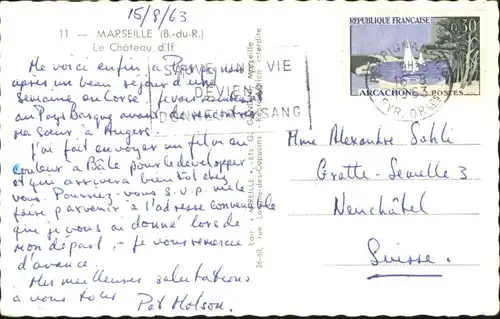 15/8/63
11 - MARSEILLE (B.-du-R.)
Le Château d'If
Me voici enfin à Perpignan
après un beau séjour d'une
semaine en Corse. Je vais ensuite
au Pays Basque avant de rencontrer
ma sœur à Angers.
J'ai fait envoyer un film en
couleur à Bâle pour le developper
et qui arrivera bientôt chez
vous. Pourriez-vous s.v.p. me le
faire parvenir à l'adresse convenable
que je vous ai donné lors de
mon départ, - je vous remercie
d'avance.
Mes meilleures salutations
à vous tous
Pat Molson.
SAUVE UNE VIE
DEVIENS
DONNEUR DE SANG
Reproduction interdite
36-40, rue Longue-des-Capucins - Marseille
REPUBLIQUE FRANÇAISE
0,30
ARCACHON POSTES
PERPIGNAN
1963
PYR. ORIENT.
Mme Alexandre Sahli
Gratte-Semelle 3
Neuchâtel
Suisse.